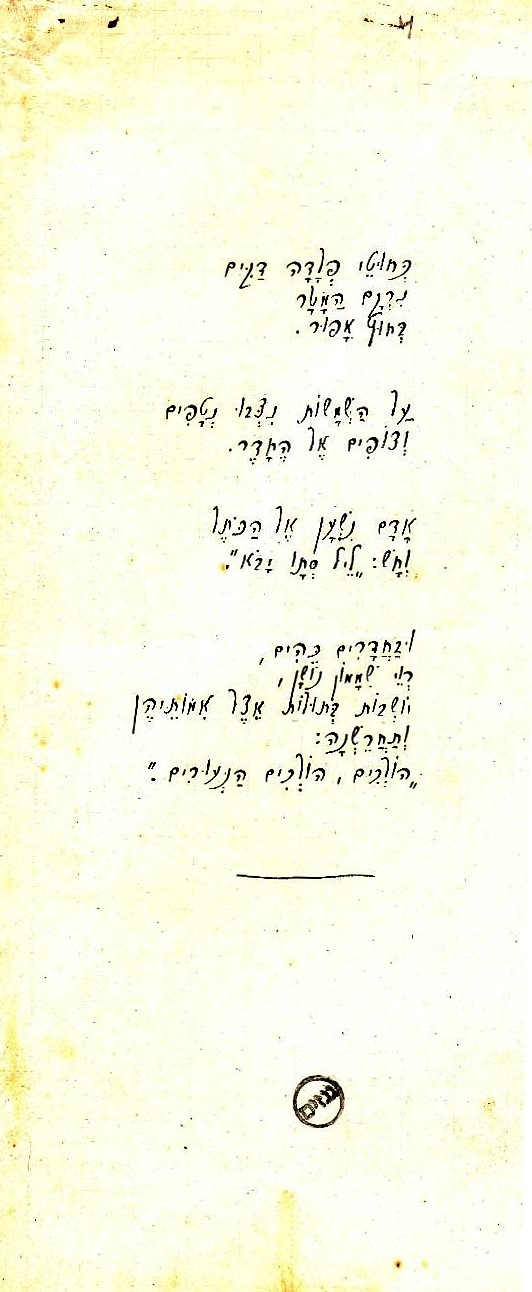 כְּחוּטֵי פְּלָדָה דַּקִּים
נִרְקָם הַמָּטָר
בְּחוּץ אָפוֹר.
עַל הַשְּׁמָשׁוֹת נִצְּבוּ נְטָפִים
וְצוֹפִים אֶל הַחֶדֶר.
אָדָם נִשְׁעָן אֶל הַכֹּתֶל
וְחָשׁ: „לֵיל סְתָו יָבֹא".
וּבַחֲדָרִים כֵּהִים,
רְוֵי שִׁמָּמוֹן נוֹשָׁן,
יוֹשְׁבוֹת בְּתוּלוֹת אֵצֶל אִמּוֹתֵיהֶן
וְתַחֲרֵשְׁנָה:
„הוֹלְכִים, הוֹלְכִים הַנְּעוּרִים."